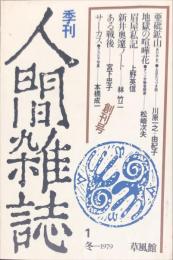 季刊
人間雑誌
亜砒鉱山
川原一之
由紀子
地獄の喧嘩花
松崎次夫
眉屋私記
上野英信
新井奥邃ノート
林竹二
ある戦後
宮下忠子
サーカス
本橋成一
創刊号
1
冬―1979
草風館